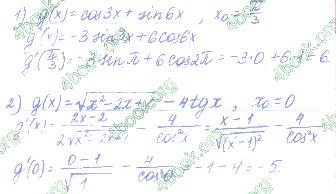 1) g(x) = cos3x + sin6x , x₀ = π/3
g'(x) = -3 sin3x + 6cos6x
g'(π/3) = -3 sin π + 6 cos2π = -3·0 + 6·1 = 6.
2) g(x) = √(x²-2x+1) - 4tgx , x₀ = 0
g'(x) = (2x-2)/(2√(x²-2x+1)) - 4/cos²x = (x-1)/√((x-1)²) - 4/cos²x
g'(0) = (0-1)/√1 - 4/cos²0 = -1-4 = -5.